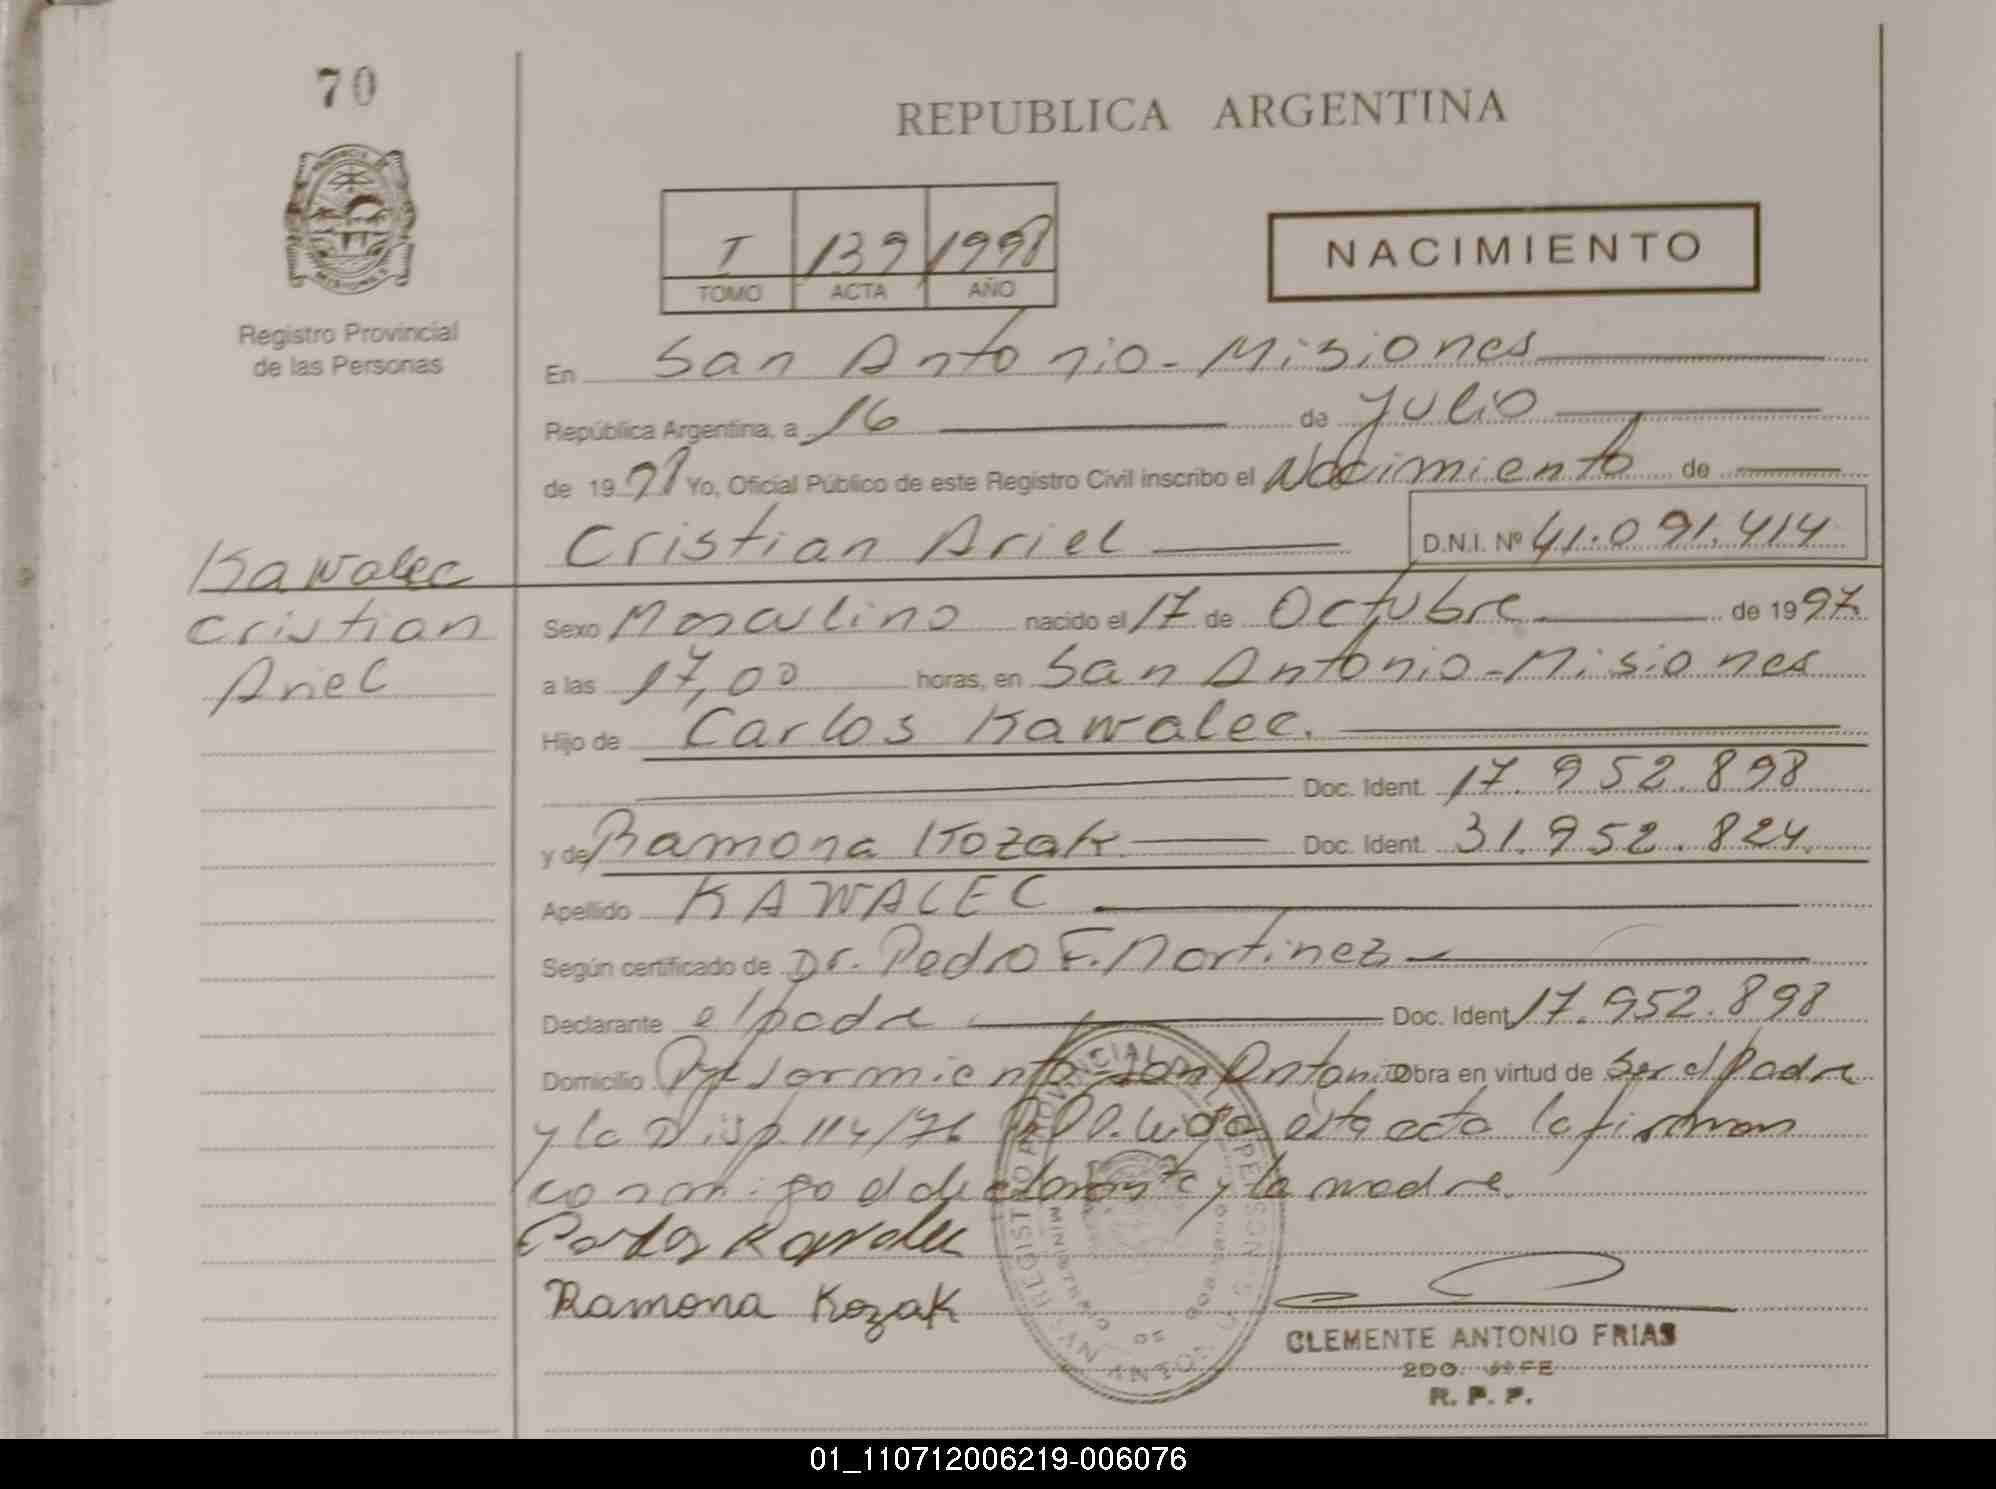 70
REPUBLICA ARGENTINA
I 139 1998
TOMO ACTA AÑO
NACIMIENTO
Registro Provincial
de las Personas
En San Antonio - Misiones
República Argentina, a 16 de Julio
de 1998 Yo, Oficial Público de este Registro Civil inscribo el Nacimiento de
Cristian Ariel D.N.I. Nº 41.091.414
Kawalec
Cristian
Ariel
Sexo Masculino nacido el 17 de Octubre de 1997.
a las 17,00 horas, en San Antonio - Misiones
Hijo de Carlos Kawalec.
Doc. Ident. 17.952.898
y de Ramona Kozak Doc. Ident. 31.952.824.
Apellido KAWALEC
Según certificado de Dr. Pedro F. Martinez
Declarante el padre Doc. Ident. 17.952.898
Domicilio Pje Sarmiento San Antonio Obra en virtud de ser el padre
y la Disp 114/76 Leida esta acta la firman
conmigo el declarante y la madre.
Carlos Kawalec
Ramona Kozak
REGISTRO PROVINCIAL DE LAS PERSONAS
SAN ANTONIO
CLEMENTE ANTONIO FRIAS
2DO. JEFE
R. P. P.
01_110712006219-006076